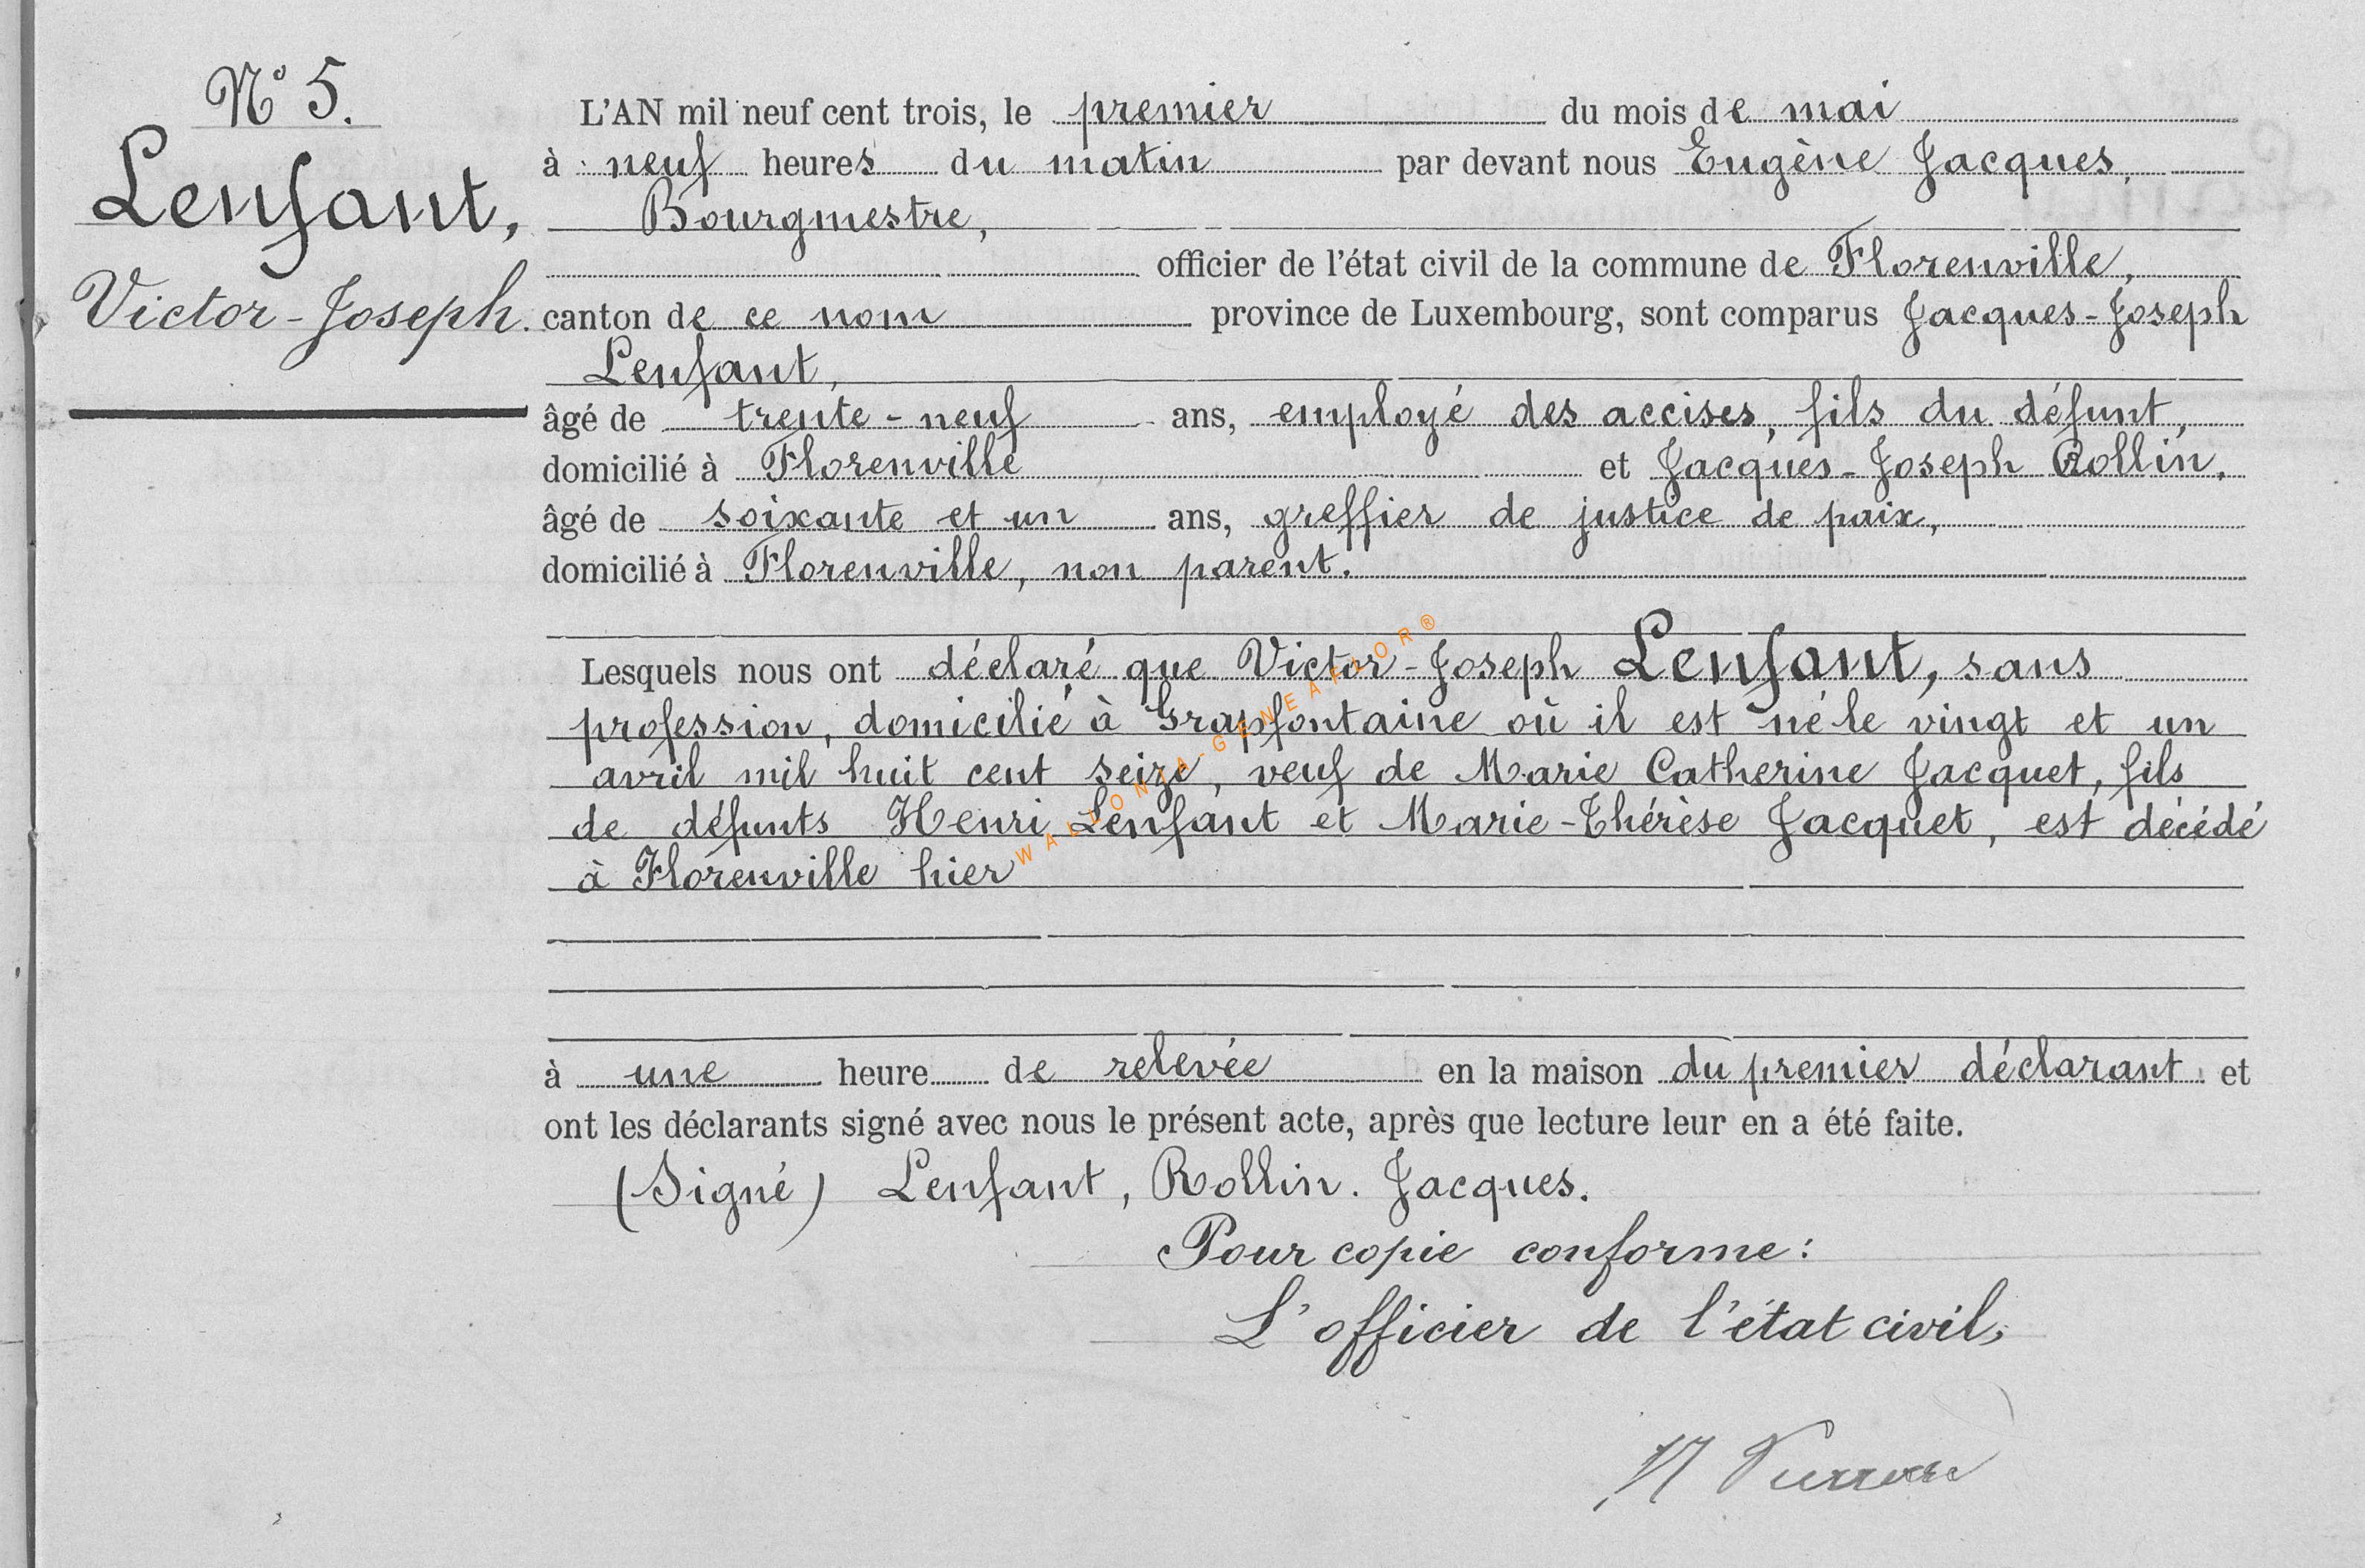 N° 5.
Lenfant,
Victor-Joseph.
L'AN mil neuf cent trois, le premier du mois de mai
à neuf heures du matin par devant nous Eugène Jacques,
Bourgmestre,
officier de l'état civil de la commune de Florenville,
canton de ce nom province de Luxembourg, sont comparus Jacques-Joseph
Lenfant,
âgé de trente-neuf ans, employé des accises, fils du défunt,
domicilié à Florenville et Jacques-Joseph Rollin,
âgé de soixante et un ans, greffier de justice de paix,
domicilié à Florenville, non parent.
Lesquels nous ont déclaré que Victor-Joseph Lenfant, sans
profession, domicilié à Grapfontaine où il est né le vingt et un
avril mil huit cent seize, veuf de Marie Catherine Jacquet, fils
de défunts Henri Lenfant et Marie-Thérèse Jacquet, est décédé
à Florenville hier
WALLONIA-GENEAFLOR®
à une heure de relevée en la maison du premier déclarant et
ont les déclarants signé avec nous le présent acte, après que lecture leur en a été faite.
(Signé) Lenfant, Rollin. Jacques.
Pour copie conforme:
L'officier de l'état civil,